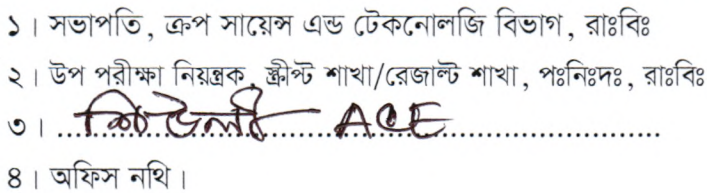 ১। সভাপতি, ক্রপ সায়েন্স এন্ড টেকনোলজি বিভাগ, রাঃবিঃ
২। উপ পরীক্ষা নিয়ন্ত্রক, স্ক্রীপ্ট শাখা/রেজাল্ট শাখা, পঃনিঃদঃ, রাঃবিঃ
৩। শিউলী ACE
৪। অফিস নথি।